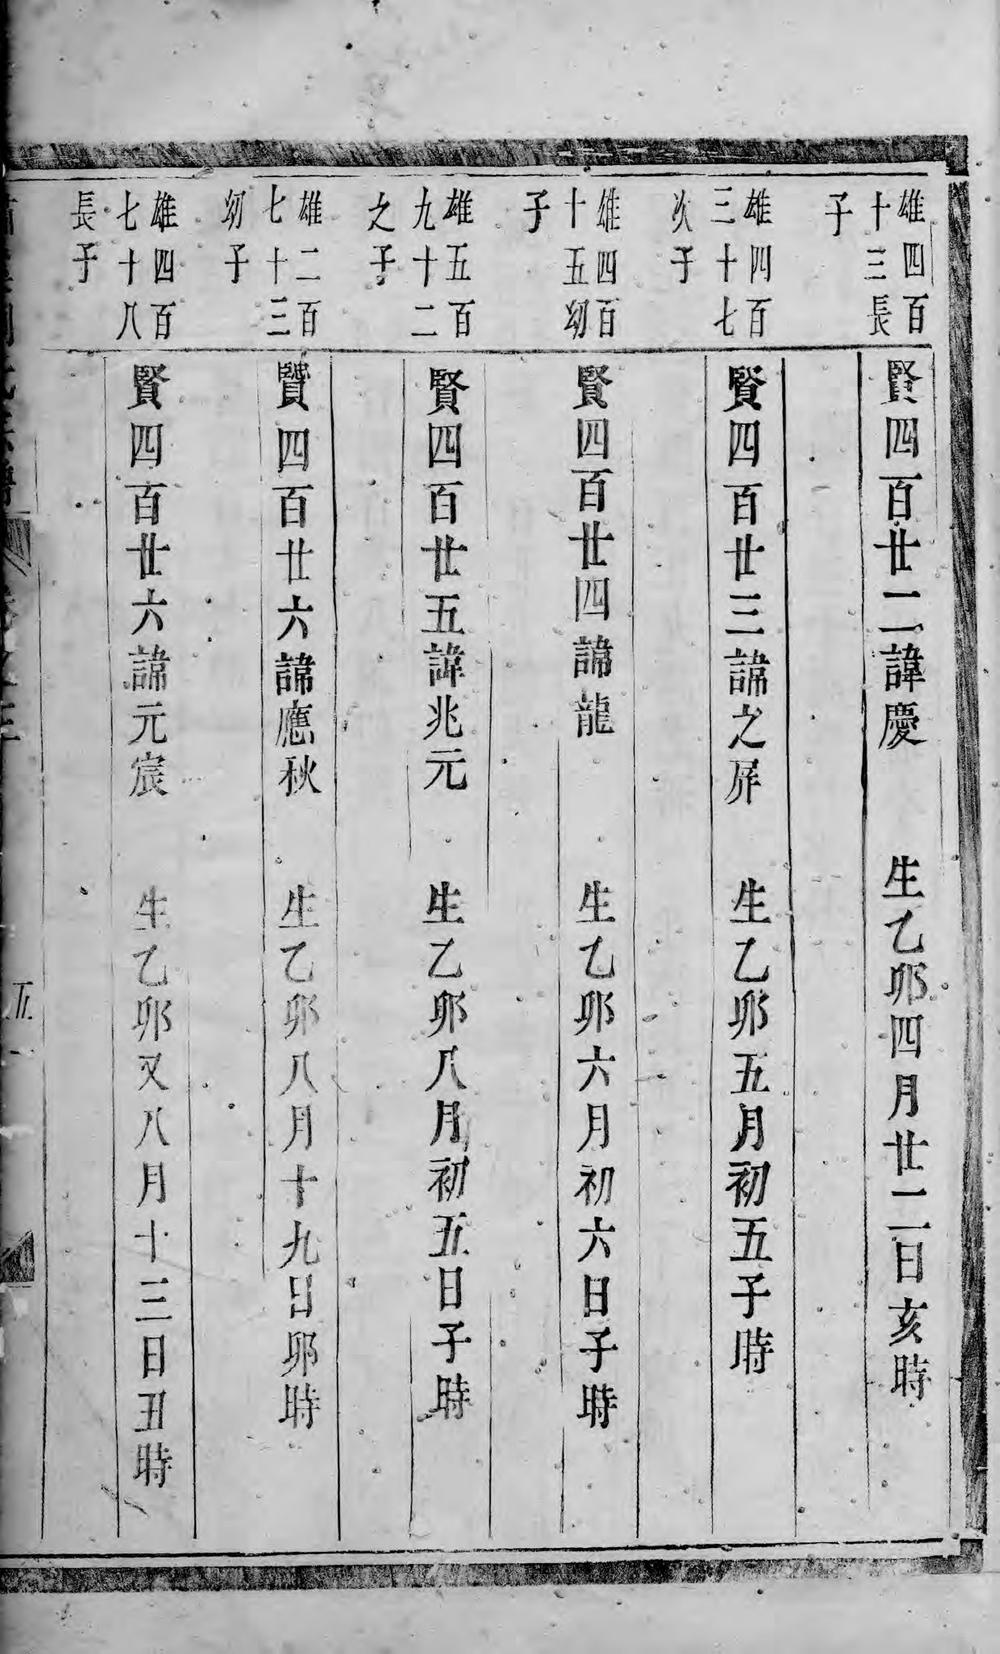 雄四百
十三長
子
賢四百廿二諱慶　生乙卯四月廿二日亥時
雄四百
三十七
次子
賢四百廿三諱之屏　生乙卯五月初五子時
雄四百
十五幼
子
賢四百廿四諱龍　生乙卯六月初六日子時
雄五百
九十二
之子
賢四百廿五諱兆元　生乙卯八月初五日子時
雄二百
七十三
幼子
賢四百廿六諱應秋　生乙卯八月十九日卯時
雄四百
七十八
長子
賢四百廿六諱元宸　生乙卯又八月十三日丑時